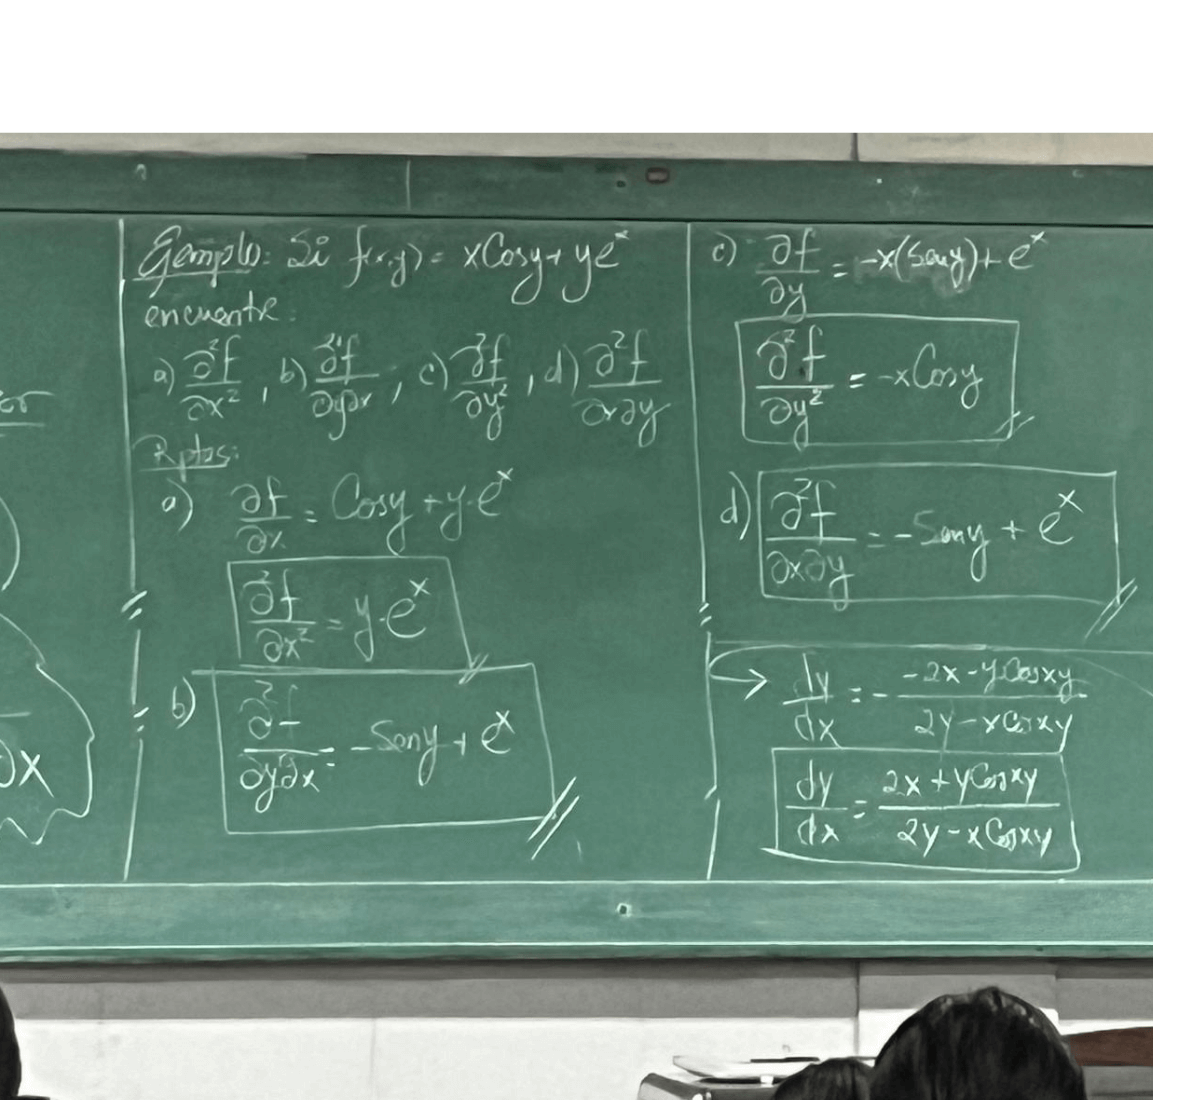 or
∂x
Ejemplo: Si f(x,y) = xCosy + ye^x
encuentre:
a) ∂²f/∂x² , b) ∂²f/∂y∂x , c) ∂²f/∂y² , d) ∂²f/∂x∂y
Rptas:
a) ∂f/∂x = Cosy + y·e^x
∂²f/∂x² = y·e^x
b) ∂²f/∂y∂x = -Seny + e^x
c) ∂f/∂y = -x(Seny) + e^x
∂²f/∂y² = -xCosy
d) ∂²f/∂x∂y = -Seny + e^x
→ dy/dx = - -2x-yCosxy/2y-xCosxy
dy/dx = 2x+yCosxy/2y-xCosxy